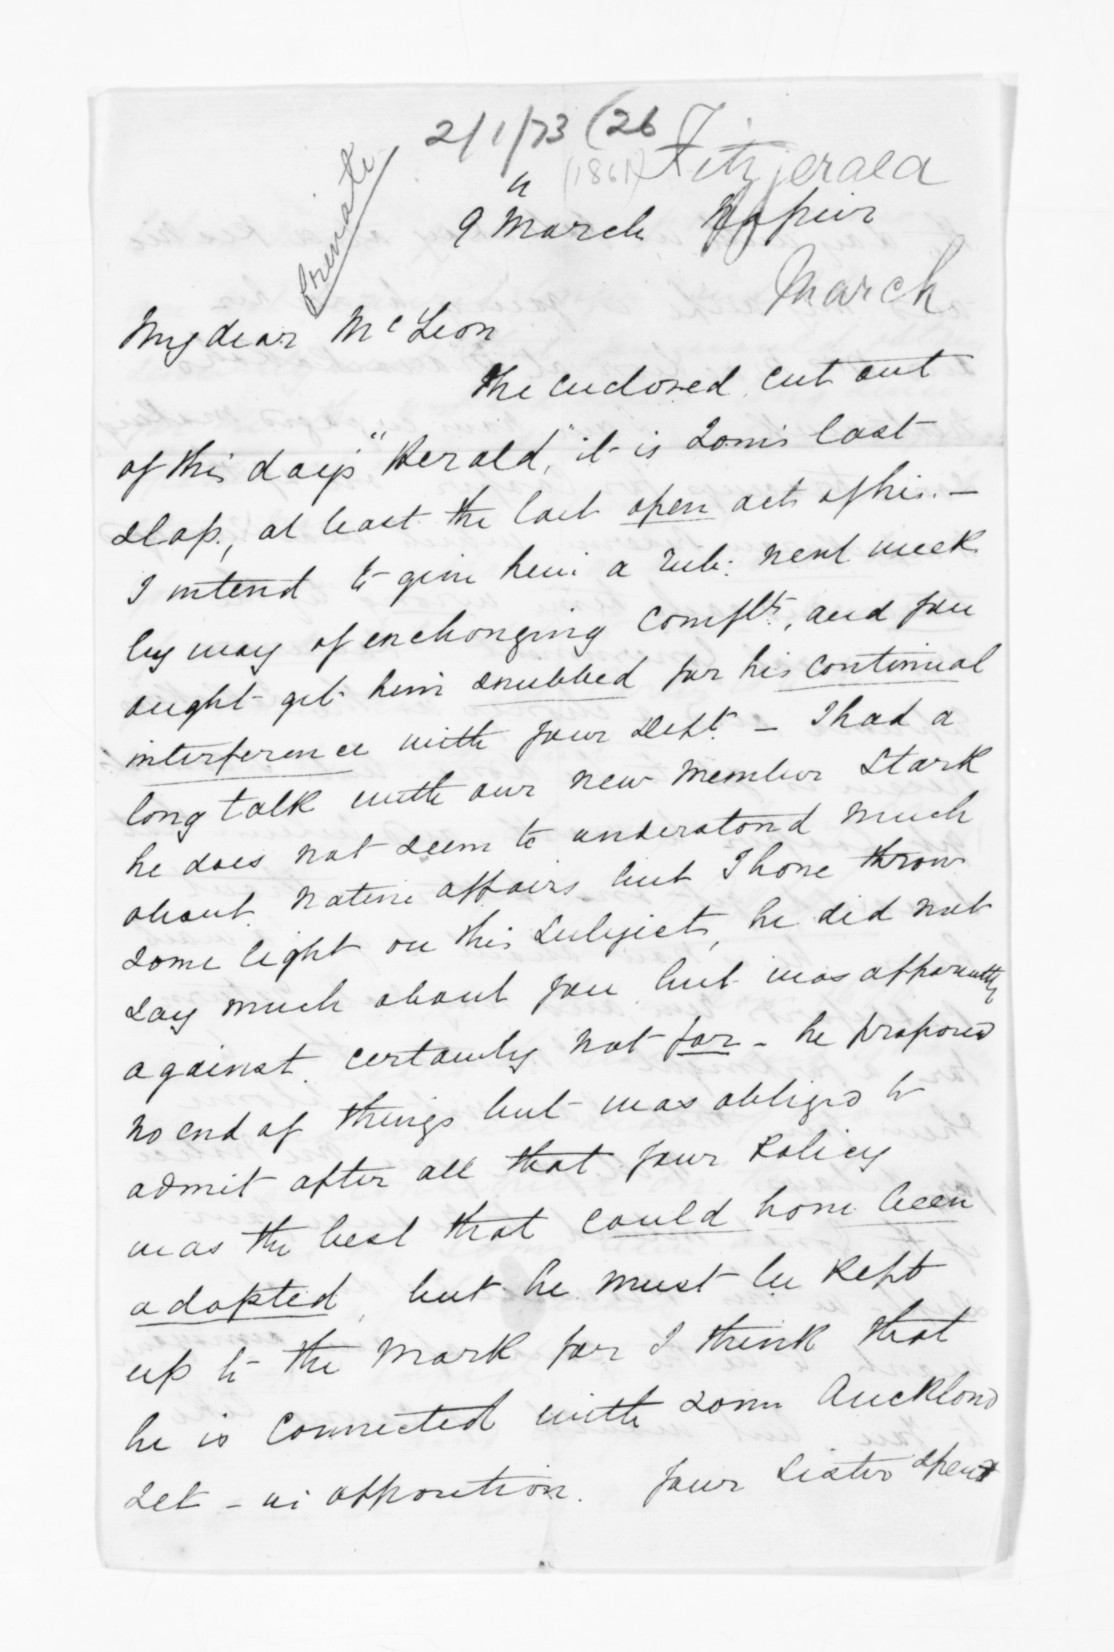 2/1/73 (26
(1861) Fitzgerald
Private
9th March Napier
March
My dear McLean
The enclosed cut out
of this day's "Herald," it is Tom's last
slap, at least the last open act of his. —
I intend to give him a rub: next week
by way of exchonging complts, and you
ought get him snubbed for his continual
interference with your Dept. — I had a
long talk with our new member Stark
he does not seem to understand much
about Native affairs but I have throw
some light on this subject, he did not
say much about you but was apparently
against. certainly not for - he proposed
no end of things but was obliged to
admit after all that your Policy
was the best that could have been
adopted, but he must be kept
up to the mark for I think that
he is connected with some Auckland
set - in opposition. Your Sister spent